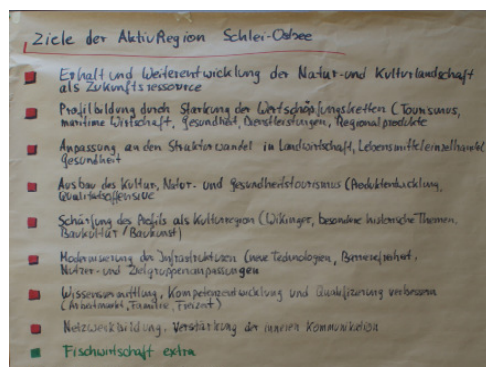 Ziele der AktivRegion Schlei-Ostsee
Erhalt und Weiterentwicklung der Natur- und Kulturlandschaft
als Zukunftsressource
Profilbildung durch Stärkung der Wertschöpfungsketten (Tourismus,
maritime Wirtschaft, Gesundheit, Dienstleistungen, Regionalprodukte
Anpassung an den Strukturwandel in Landwirtschaft, Lebensmitteleinzelhandel
Gesundheit
Ausbau des Kultur, Natur- und Gesundheitstourismus (Produktentwicklung,
Qualitätsoffensive
Schärfung des Profils als Kulturregion (Wikinger, besondere historische Themen,
Baukultur / Baukunst)
Modernisierung der Infrastrukturen (neue Technologien, Barrierefreiheit,
Nutzer- und Zielgruppenanpassungen
Wissensvermittlung, Kompetenzentwicklung und Qualifizierung verbessern
(Arbeitsmarkt, Familie, Freizeit)
Netzwerkbildung, Verstärkung der inneren Kommunikation
Fischwirtschaft extra